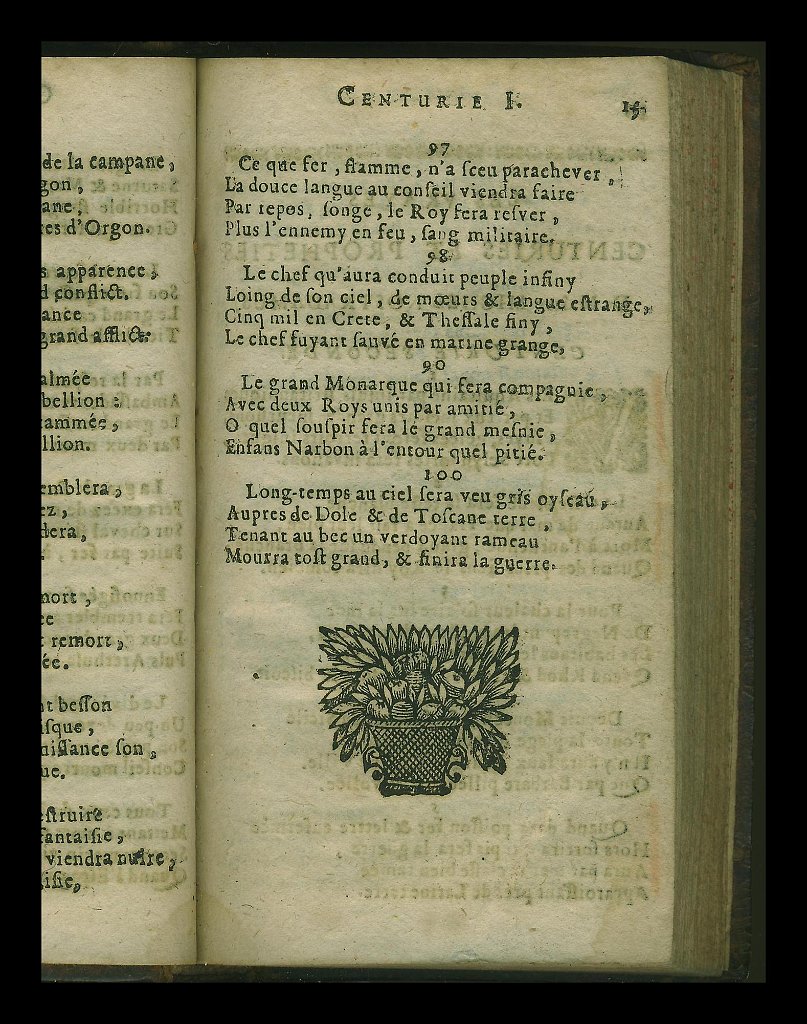 de la campane,
gon,
ane,
res d'Orgon.
s apparence,
d conflict.
ance
grand afflict:
almée
bellion:
ammée,
llion.
emblera,
ez,
dera,
mort,
ce
t remort,
ée.
nt besson
isque,
uissance son,
ue.
estruire
fantaisie,
viendra nuire,
isie,
CENTURIE I. 15.
97
Ce que fer, flamme, n'a sceu parachever,
La douce langue au conseil viendra faire
Par repos, songe, le Roy sera resver,
Plus l'ennemy en feu, sang militaire.
98
Le chef qu'aura conduit peuple infiny
Loing de son ciel, de mœurs & langue estrange,
Cinq mil en Crete, & Thessale finy,
Le chef fuyant sauvé en marine grange,
90
Le grand Monarque qui fera compagnie,
Avec deux Roys unis par amitié,
O quel souspir fera le grand mesnie,
Enfans Narbon à l'entour quel pitié.
100
Long-temps au ciel sera veu gris oyseau,
Aupres de Dole & de Toscane terre,
Tenant au bec un verdoyant rameau
Mourra tost grand, & finira la guerre.